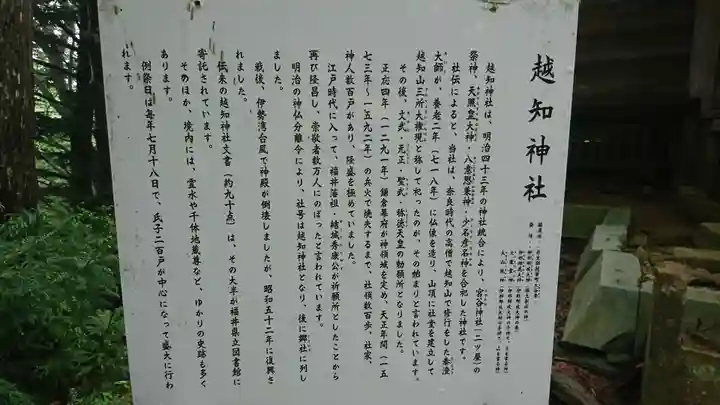 越知神社
越知神社は、明治四十三年の神社統合により、宮谷神社(二ツ屋)の
祭神、天照皇大神・八意思兼神・少名彦名神を合祀した神社です。
社伝によると、当社は、奈良時代の高僧で越知山で修行をした泰澄
大師が、養老二年(七一八年)に仏像を造り、山頂に社堂を建立して
越知山三所大権現と称して祀ったのが、その始まりと言われています。
その後、文武・元正・聖武・称徳天皇の勅願所となりました。
正応四年(一二九一年)鎌倉幕府が神領域を定め、天正年間(一五
七三年〜一五九二年)の兵火で焼失するまで、社領数百歩、社家、
神人数百戸があり、隆盛を極めていました。
江戸時代に入って、福井藩祖・結城秀康公が祈願所としたことから
再び隆昌し、崇敬者数万人にのぼったと言われています。
明治の神仏分離令により、社号は越知神社となり、後に郷社に列し
ました。
戦後、伊勢湾台風で神殿が倒壊しましたが、昭和五十二年に復興さ
れました。
伝来の越知神社文書(約九十点)は、その大半が福井県立図書館に
寄託されています。
そのほか、境内には、霊水や千体地蔵尊など、ゆかりの史跡も多く
あります。
例祭日は毎年七月十八日で、氏子二百戸が中心になって盛大に行わ
れます。